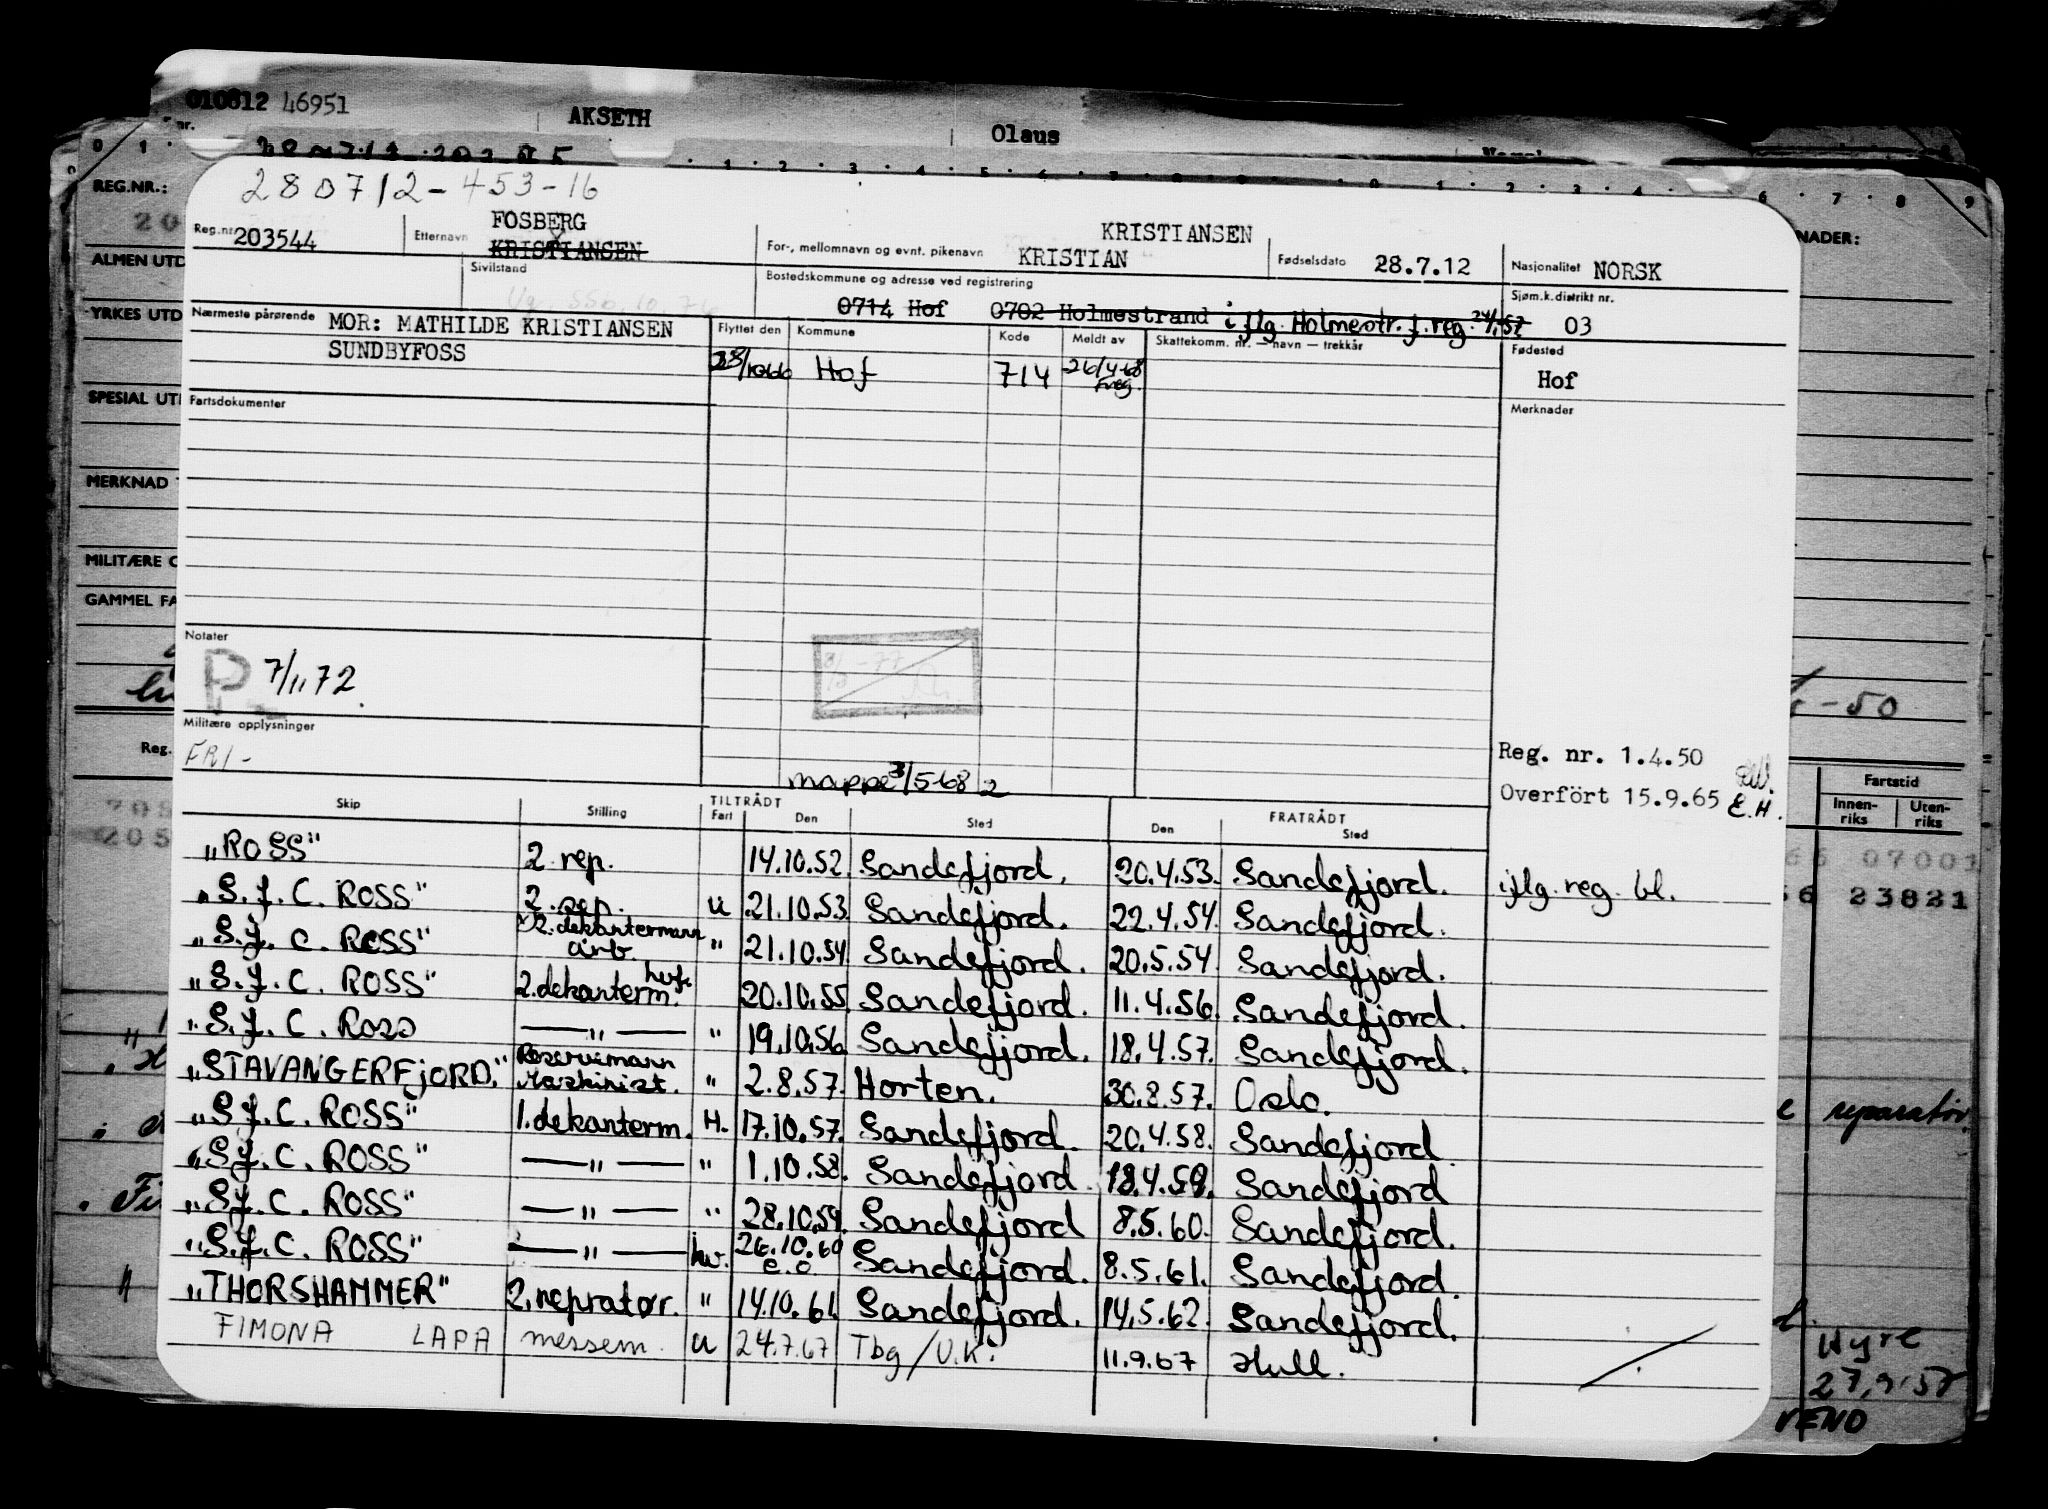 010612 46951
AKSETH
Olaus
REG.NR.:
ALMEN UTD
YRKES UTD
SPESIAL UTD
MERKNAD
MILITÆRE O
GAMMEL FA
NADER:
280712-453-16
Reg.nr. 203544
Etternavn FOSBERG
KRISTIANSEN
For-, mellomnavn og evnt. pikenavn KRISTIANSEN
KRISTIAN
Fødselsdato 28.7.12
Nasjonalitet NORSK
Sivilstand
Bostedskommune og adresse ved registrering
0714 Hof 0702 Holmestrand i flg. Holmestr. f.reg. 24/1.57
Sjøm.k.distrikt nr.
03
Nærmeste pårørende MOR: MATHILDE KRISTIANSEN
SUNDBYFOSS
Flyttet den Kommune Kode Meldt av Skattekomm. nr. — navn — trekkår
Hof 714 26/4-68 Freg.
Fødested
Hof
Fartsdokumenter
Merknader
Notater
P 7/11 72.
Militære opplysninger
FRI-
mappe 3/5-68 2
Reg. nr. 1.4.50
Overfört 15.9.65 E.H.
Skip Stilling TILTRÅDT Fart Den Sted FRATRÅDT Den Sted
"ROSS" 2 rep. 14.10.52 Sandefjord. 20.4.53. Sandefjord. iflg. reg. bl.
"S.J.C. ROSS" 2. rep. u 21.10.53 Sandefjord. 22.4.54. Sandefjord.
"S.J. C. ROSS" 2. dekantermann arb. " 21.10.54 Sandefjord. 20.5.54. Sandefjord.
"S.J.C. ROSS" 2. dekanterm. 20.10.55 Sandefjord. 11.4.56. Sandefjord.
"S.J.C. Ross —"— " 19.10.56 Sandefjord. 18.4.57. Sandefjord.
"STAVANGERFJORD." Reservemann Maskinist. " 2.8.57. Horten. 30.8.57. Oslo.
"S.J.C. ROSS" 1. dekanterm. H. 17.10.57. Sandefjord. 20.4.58. Sandefjord.
"S.J.C. ROSS" —"— " 1.10.58. Sandefjord 18.4.59. Sandefjord
"S.J.C. ROSS" —"— " 28.10.59. Sandefjord 8.5.60. Sandefjord.
"S.J.C. ROSS" —"— hv. 26.10.60 e.o. Sandefjord. 8.5.61. Sandefjord.
"THORSHAMMER" 2. repratør. " 14.10.61. Sandefjord. 14.5.62. Sandefjord.
FIMONA LAPA messem. u 24.7.67 Tbg/U.K. 11.9.67 Hull.
Reg.
-50
Fartstid
Innen-riks
Uten-riks
07001
23821
reparatør.
Hyre
27.9.57